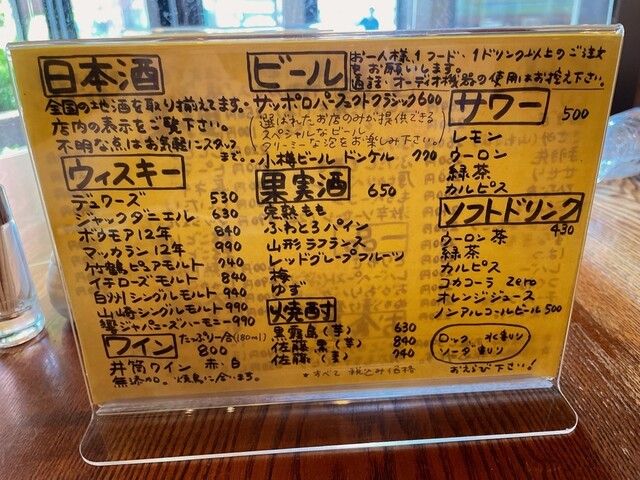 日本酒
全国の地酒を取り揃えてます。
店内の表示をご覧下さい。
不明な点はお気軽にスタッフ
まで。。
ウィスキー
デュワーズ 530
ジャックダニエル 630
ボウモア12年 840
マッカラン12年 990
竹鶴ピュアモルト 740
イチローズモルト 840
白州シングルモルト 940
山崎シングルモルト 990
響ジャパニーズハーモニー 990
ワイン
たっぷり一合(180ml)
800
井筒ワイン 赤・白
無添加。焼鳥に合います。
ビール
サッポロパーフェクトクラシック 600
選ばれたお店のみが提供できる
スペシャルなビール
クリーミーな泡をお楽しみ下さい。
小樽ビール ドンケル 770
果実酒 650
完熟もも
ふわとろパイン
山形ラフランス
レッドグレープフルーツ
梅
ゆず
焼酎
黒霧島(芋) 630
佐藤 黒(芋) 840
佐藤 (麦) 740
*すべて 税込み価格
お一人様1フード、1ドリンク以上のご注文
をお願いします。
通話・オーディオ機器の使用はお控え下さい。
サワー 500
レモン
ウーロン
緑茶
カルピス
ソフトドリンク
430
ウーロン茶
緑茶
カルピス
コカコーラ zero
オレンジジュース
ノンアルコールビール 500
ロック 水割り
ソーダ割り
おえらび下さい!